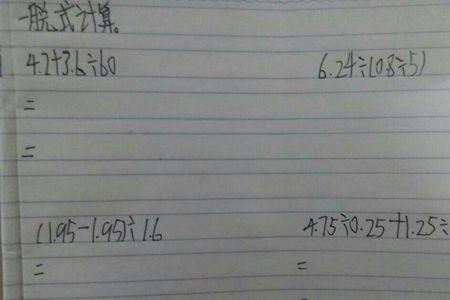 一脱式计算。
4.2+3.6÷60 6.24÷(0.8÷5)
=
=
(1.95-1.95)÷1.6 4.75÷0.25+1.25÷
= =
=